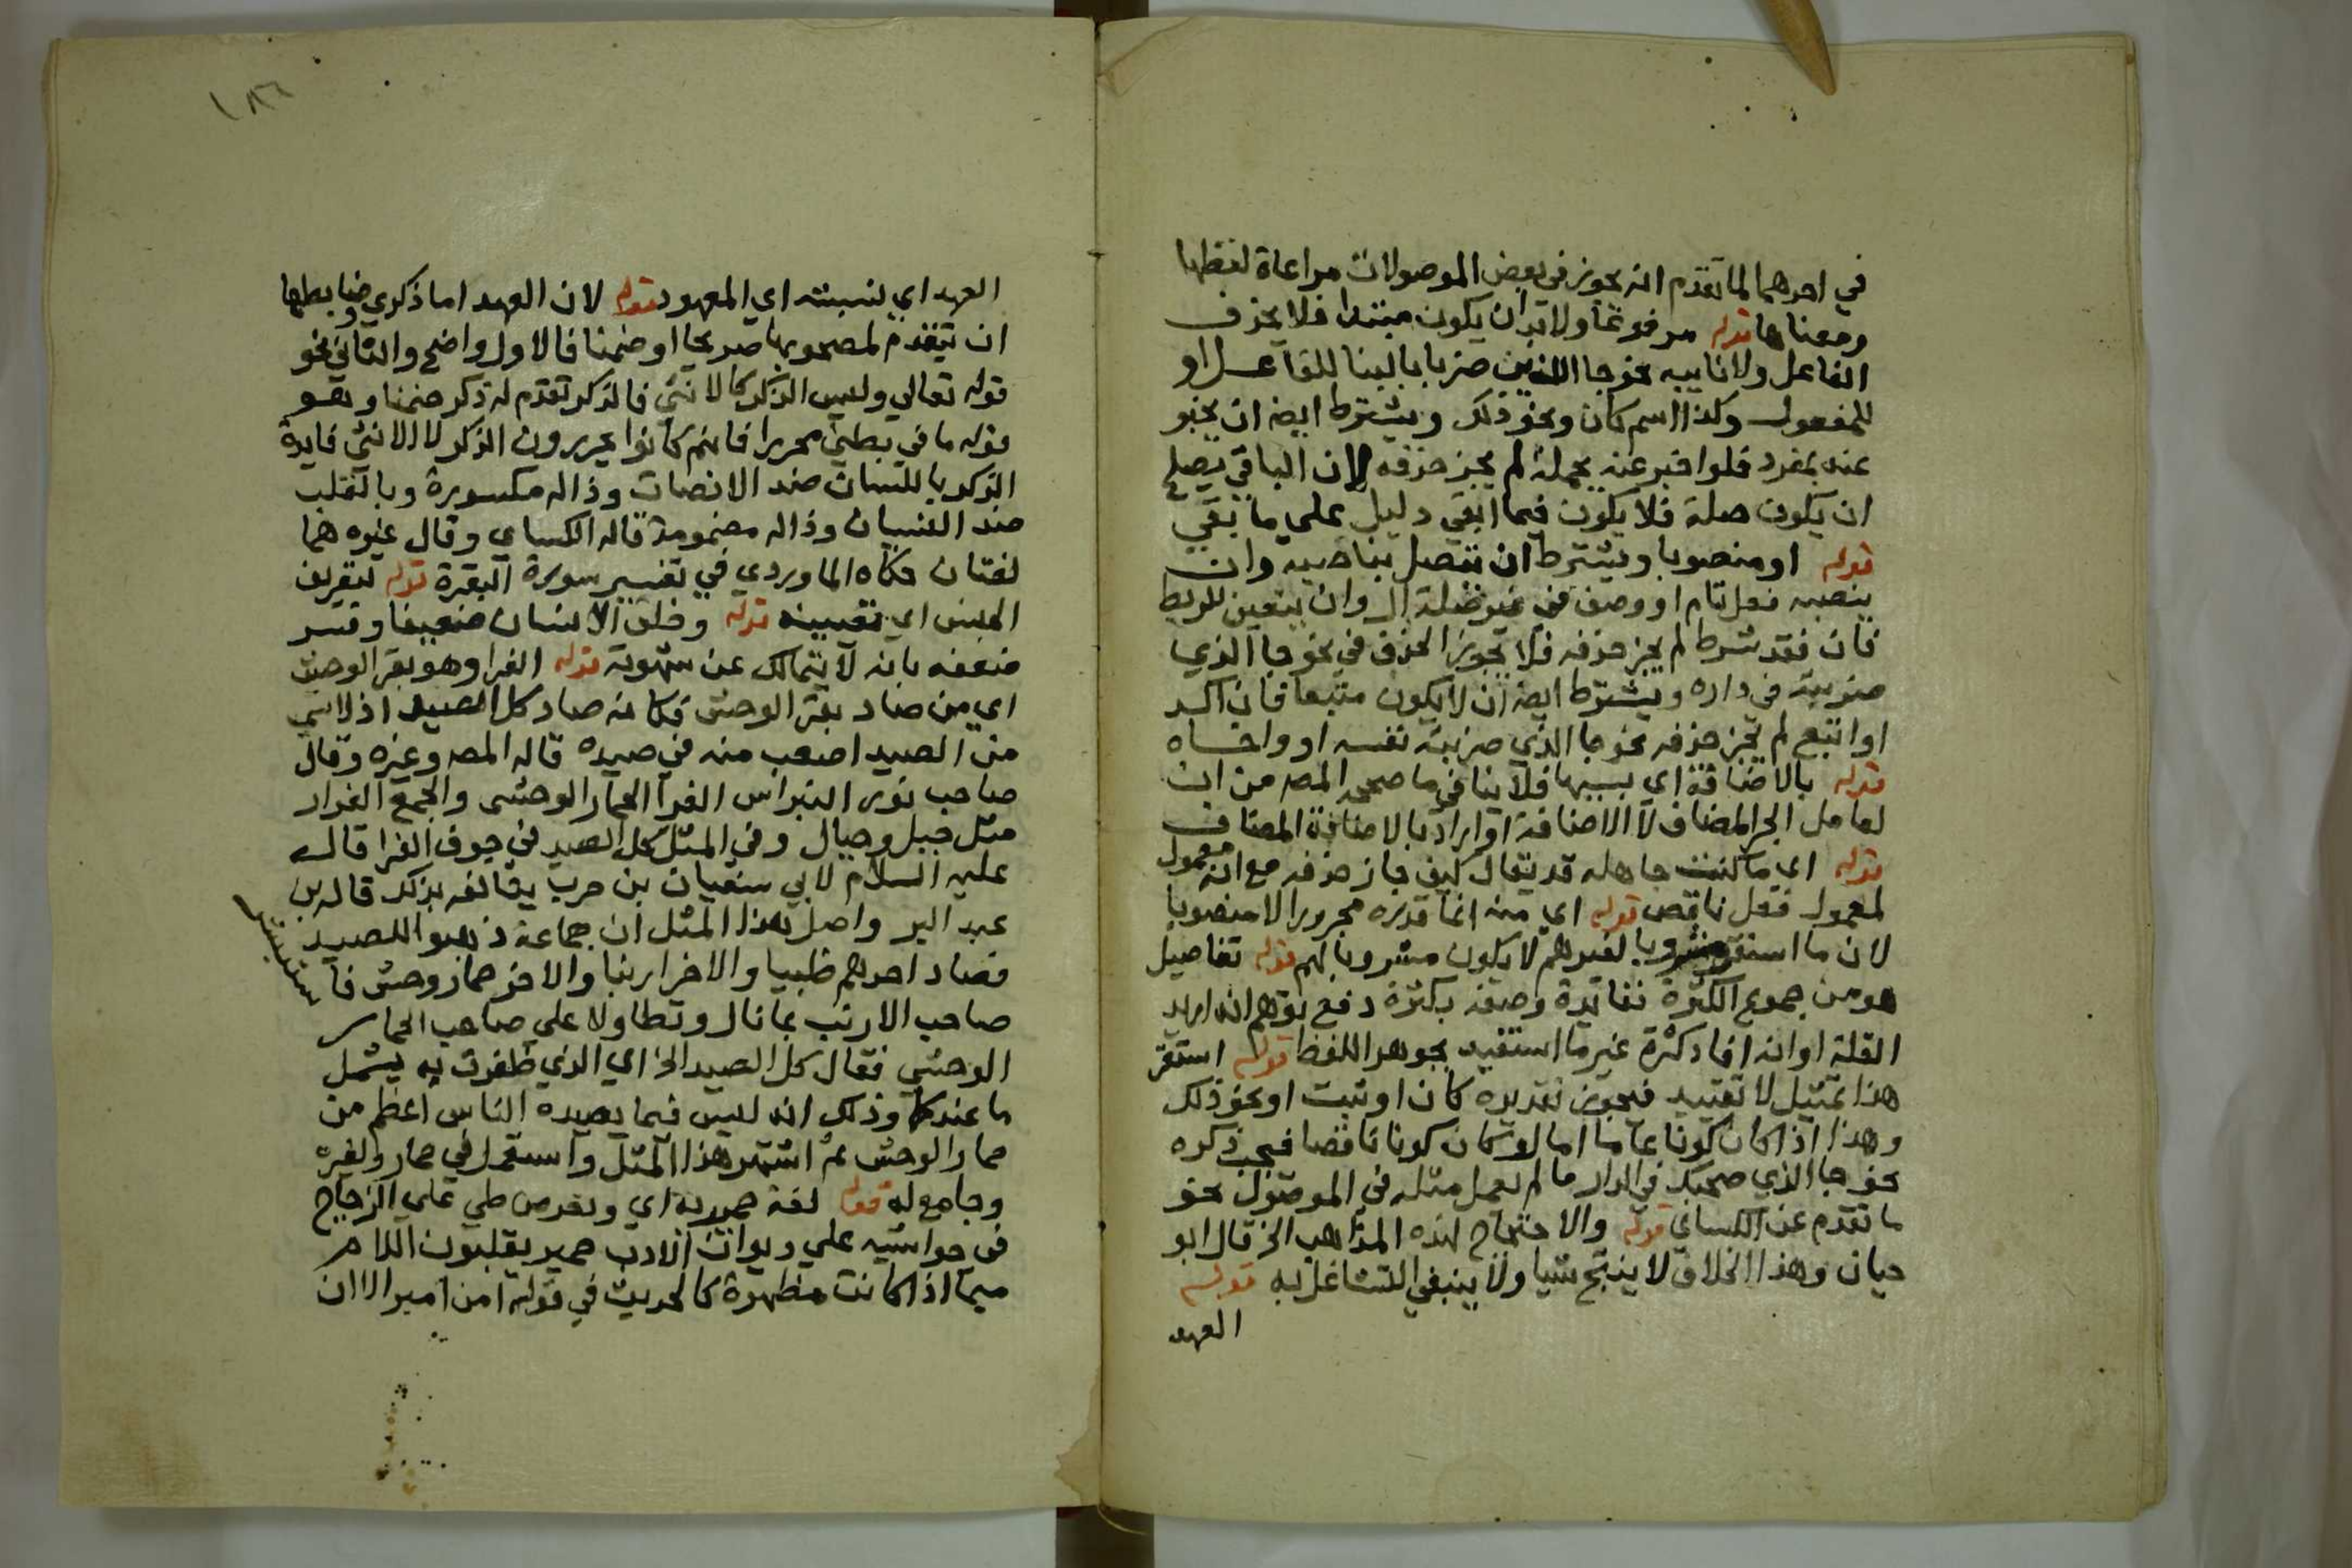 في احدهما لما تقدم انه يجوز في بعض الموصولات مراعاة لفظها
ومعناها قوله مرفوعا ولابد ان يكون مبتدا فلا يحذف
الفاعل ولا نايبه نحو جا اللذين ضربا بالبنا للفاعل او
للمفعول وكذا اسم كان ونحو ذلك ويشترط ايضا ان يخبر
عنه بمفرد فلو اخبر عنه بجملة لم يجز حذفه لان الباقي يصلح
ان يكون صلة فلا يكون فيما ابقي دليل على ما بقي
قوله او منصوبا ويشترط ان تتصل بناصبه وان
ينصبه فعل تام او وصف في غير صلة ال وان يتعين للربط
فان فقد شرط لم يجز حذفه فلا يجوز الحذف في نحو جا الذي
ضربته في داره ويشترط ايضا ان لا يكون متبعا فان اكد
او اتبع لم يجز حذفه نحو جا الذي ضربته نفسه او واخاه
قوله بالاضافة اي بسببها فلا ينافي ما صححه المصه من ان
لعامل الجر المضاف لا الاضافة او اراد بالاضافة المضاف
قوله اي ما كنت جاهله قد يقال كيف جاز حذفه مع انه معمول
لمعمول فعل ناقص قوله اي منه انما قدره مجرورا لا منصوبا
لان ما استقر مشروبا لغيرهم لا يكون مشروبا لهم قوله تفاصيل
هو من جموع الكثرة ففايدة وصفه بكثرة دفع توهم انه اريد
القلة او انه افاد كثرة غير ما استفيد بجوهر اللفظ قوله استقر
هذا تمثيل لا تقييد فيجوز تقديره كان او ثبت او نحو ذلك
وهذا اذا كان كونا عاما اما لو كان كونا ناقصا فيجب ذكره
نحو جا الذي ضحك في الدار ما لم يعمل مثله في الموصول نحو
ما تقدم عن الكساني قوله والاحتجاج لهذه المذاهب الخ قال ابو
حيان وهذا الخلاف لا ينتج شيا ولا ينبغي التشاغل به قوله
العهد
١٨٦
العهد اي لنسبته اي المعهود قوله لان العهد اما ذكري وضابطها
ان يتقدم لمصحوبها صريحا او ضمنا فالاول واضح والثاني نحو
قوله تعالى وليس الذكر كالانثى فالذكر تقدم له ذكر ضمنا وهو
قوله ما في بطني محررا فانهم كانوا يحررون الذكر لا الانثى فايدة
الذكر باللسان ضد الانصات وذاله مكسورة وبالقلب
ضد النسيان وذاله مضمومة قاله الكساي وقال غيره هما
لغتان حكاه الماوردي في تفسير سورة البقرة قوله لتعريف
الجنس اي نفسه قوله وخلق الانسان ضعيفا وفسر
ضعفه بانه لا يتمالك عن شهوته قوله الفرا وهو بقر الوحش
اي من صاد بقر الوحش فكانه صاد كل الصيد اذ لا شي
من الصيد اصعب منه في صيده قاله المصه وغيره وقال
صاحب نور النبراس الفرا الحمار الوحشي والجمع الفرار
مثل جبل وجبال وفي المثل كل الصيد في جوف الفرا قاله
عليه السلام لابي سفيان بن حرب يقالفه بذلك قاله بن
عبد البر واصل هذا المثل ان جماعة ذهبوا للصيد
فصاد احدهم ظبيا والاخر ارنبا والاخر حمار وحش فا
ستبشر
صاحب الارنب بما نال وتطاولا على صاحب الحمار
الوحشي فقال كل الصيد الخ اي الذي ظفرت به يشمل
ما عندكما وذلك انه ليس فيما يصيده الناس اعظم من
حمار الوحش ثم اشتهر هذا المثل واستعمل في حمار ولغيره
وجامع له قوله لغة حميرية اي ونفر من طي على الزجاج
في حواشيه على ديوان الادب حمير يقلبون اللام
ميما اذا كانت مظهرة كالحديث في قوله امن امبر الا ان